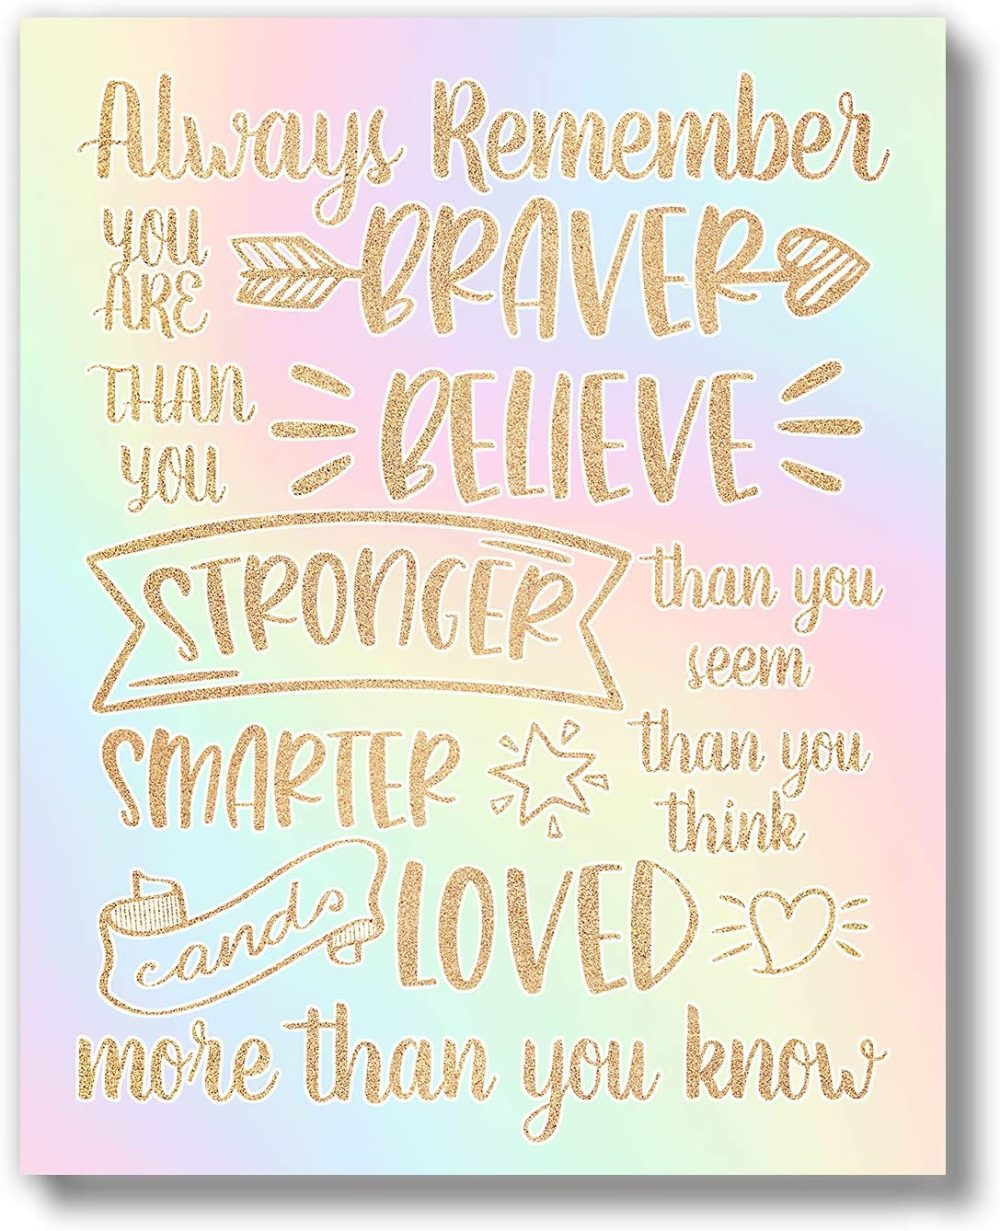 Always Remember
YOU ARE BRAVER
THAN YOU BELIEVE
STRONGER than you seem
SMARTER than you think
and LOVED
more than you know